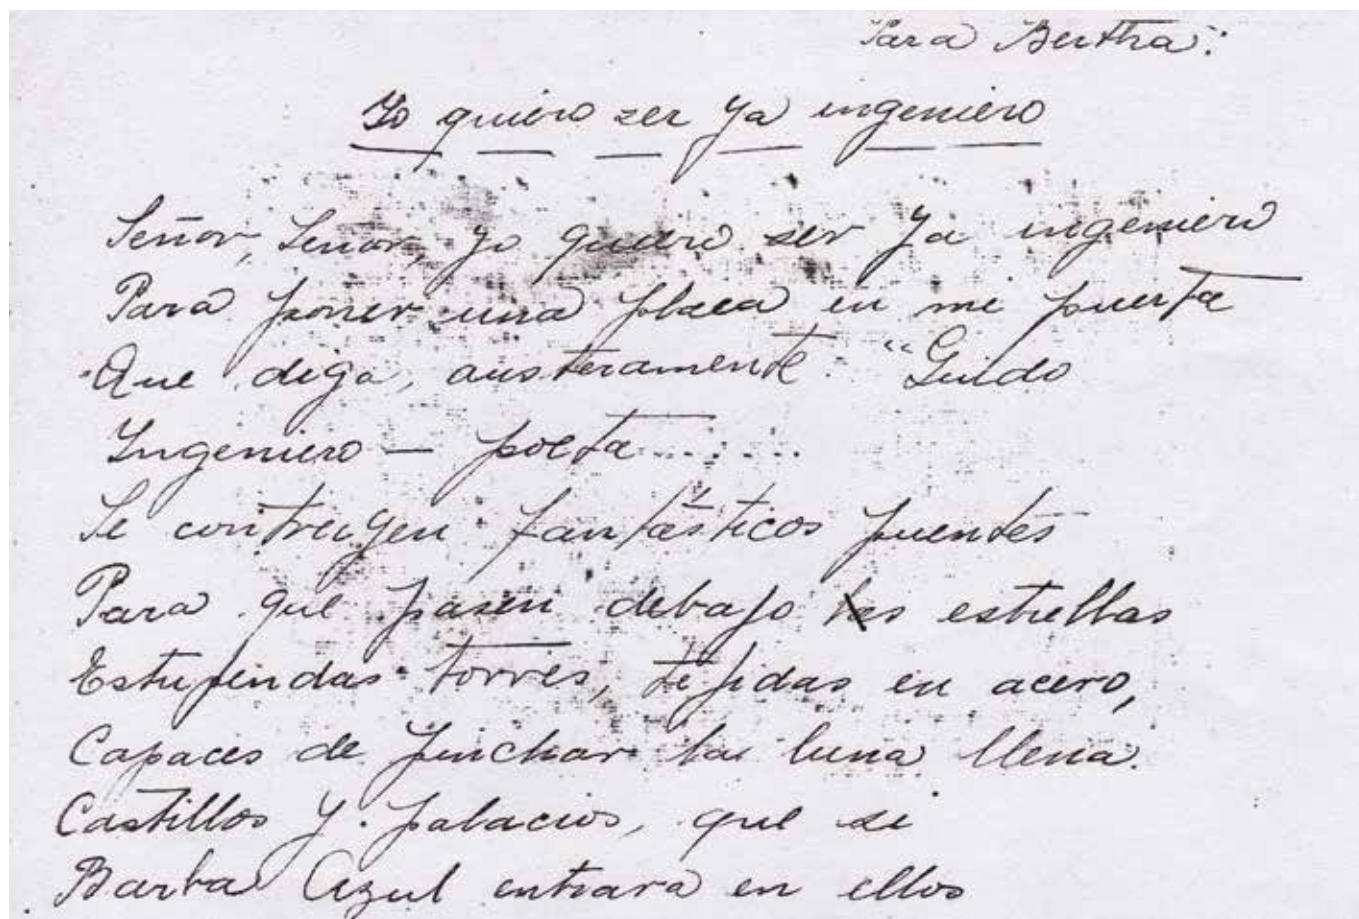 Para Bertha:
Yo quiero zer ya ingeniero
Señor, Señor, yo quiero ser ya ingeniero
Para poner una placa en mi puerta
Que diga, austeramente: "Guido
Ingeniero — poeta.......
Se contruyen fantásticos puentes
Para que pasen debajo las estrellas
Estupendas torres, tejidas en acero,
Capaces de pinchar la luna llena.
Castillos y palacios, que si
Barba Azul entrara en ellos